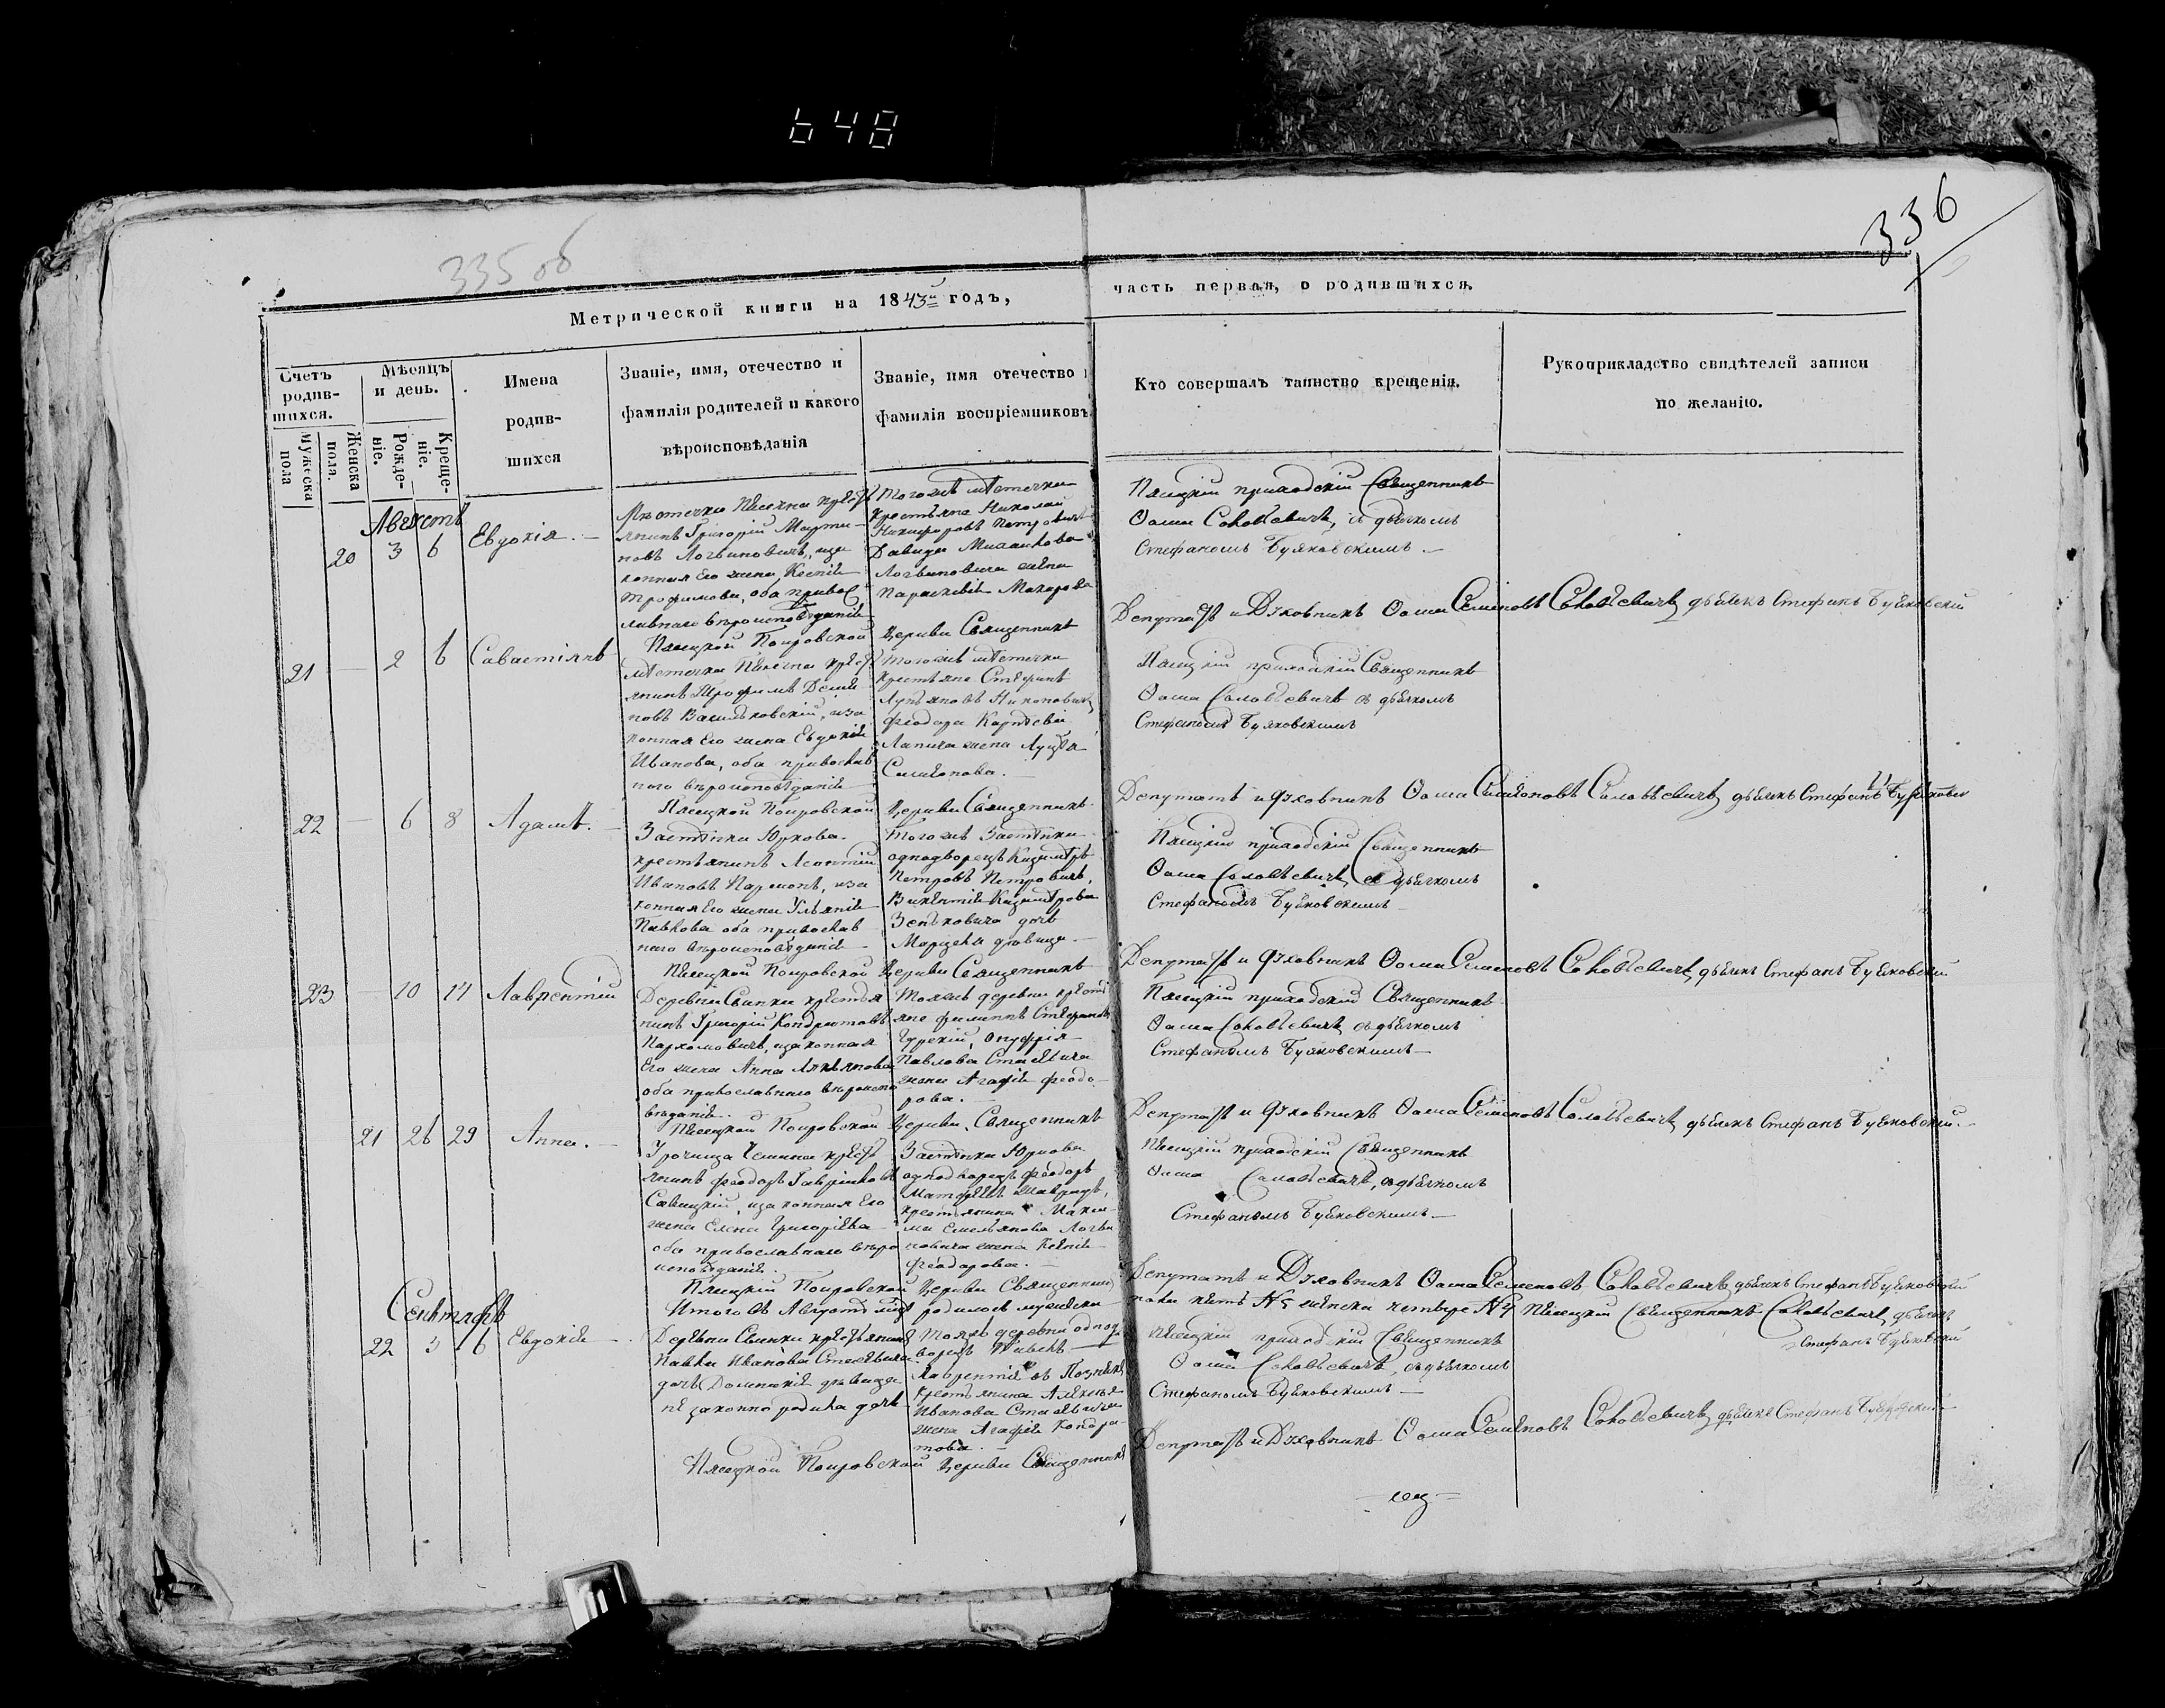 648
336
335 об
Метрической книги на 1843й годъ,
часть первая, о родившихся.
Счетъ родив-шихся.
Мужеска пола
Женска пола.
Мѣсяцъ и день.
Рожде-ніе.
Креще-ніе.
Имена
родив-
шихся
Званіе, имя, отечество и
фамилія родителей и какого
вѣроисповѣданія
Званіе, имя отечество и
фамилія воспріемниковъ
Кто совершалъ таинство крещенія.
Рукоприкладство свидѣтелей записи
по желанію.
Августъ
20 3 6 Евдокія.
крест
янинъ Григорій Марти-
новъ Логвиновичъ, иза
конная Его жена Ксенія
Трофимова, оба правос
лавнаго вѣроисповѣданія
Тогожъ мѣстечка
крестьяне Николай
Никифоровъ Петровичъ
Давида Михайлова
Логвиновича жена
Параскевія Макарова
приходскій Священникъ
Ѳома Соловьевичъ, съ дьячкомъ
Стефаномъ Буяковскимъ.
Покровской Церкви Священникъ
Депутатъ и Духовникъ Ѳома Семеновъ Соловьевичъ, дьячекъ Стефанъ Буяковскій
21 — 2 6 Савастіянъ
крест
янинъ Трофимъ
новъ Васильковскій, иза
конная Его жена Евдокія
Иванова, оба православ
наго вѣроисповѣданія
Тогожъ мѣстечка
крестьяне Стефанъ
Феодора
жена
Симеонова.
приходскій Священникъ
Ѳома Соловьевичъ съ дьячкомъ
Стефаномъ Буяковскимъ
Покровской Церкви Священникъ
Депутатъ и Духовникъ Ѳома Симеоновъ Соловьевичъ, дьячекъ Стефанъ
22 — 6 8 Адамъ.
Застѣнка Юркова
крестьянинъ Леонтій
Ивановъ Пармонъ, иза
конная Его жена Ульянія
Павлова оба православ
наго вѣроисповѣданія
Тогожъ Застѣнка
однодворецъ Казимѣръ
Петровъ Петровичъ,
Викентія Казимѣрова
Зеньковича дочь
Марцеля дѣвица
приходскій Священникъ
Ѳома Соловьевичъ, съ дьячкомъ
Стефаномъ Буяковскимъ
Покровской Церкви Священникъ
Депутатъ и Духовникъ Ѳома Семеновъ Соловьевичъ, дьячекъ Стефанъ Буяковскій
23 — 10 Лаврентій
Деревни Свинки крестья
нинъ Григорій Кондратовъ
Пархомовичъ, изаконная
Его жена Анна
оба православнаго вѣроиспо
вѣданія.
Тояжъ деревни крестья
яне Филиппъ Стефановъ
Онуфрія
Павлова Стасевича
жена Агафія Феодо-
рова.
приходскій Священникъ
Ѳома Соловьевичъ, съ дьячкомъ
Стефаномъ Буяковскимъ
Покровской Церкви, Священникъ
Депутатъ и Духовникъ Ѳома Семеновъ Соловьевичъ, дьячекъ Стефанъ Буяковскій.
21 26 29 Анна.
Урочища крест
янинъ Феодоръ Гавріиловъ
Савицкій, изаконная Его
жена Елена Григоріева
оба православнаго вѣро
исповѣданія.
Застѣнка Юркова
однодворецъ Феодоръ
крестьянина Макси-
ма Емельянова Логви
новича жена Ксенія
Феодорова.
приходскій Священникъ
Ѳома Соловьевичъ, съ дьячкомъ
Стефаномъ Буяковскимъ
Покровской Церкви Священникъ
Депутатъ и Духовникъ Ѳома Семеновъ Соловьевичъ, дьячекъ Стефанъ Буяковскій
Итого въ Августѣ родилось мужеска пола пять №5 женска четыре №4 Священникъ Соловьевичъ, дьячекъ
Стефанъ Буяковскій
Сентябрь
22 3 6 Евдокія
Деревни Свинки крестьянина
Павла Иванова Стасевича
дочь Доминикія дѣвица
незаконно родила дочь
Тояжъ деревни однод
ворецъ
крестьянина Алексѣя
Иванова Стасевича
жена Агафія Кондра-
това.
приходскій Священникъ
Ѳома Соловьевичъ, съ дьячкомъ
Стефаномъ Буяковскимъ
Покровской Церкви Священникъ
Депутатъ и Духовникъ Ѳома Семеновъ Соловьевичъ, дьячекъ Стефанъ Буяковскій